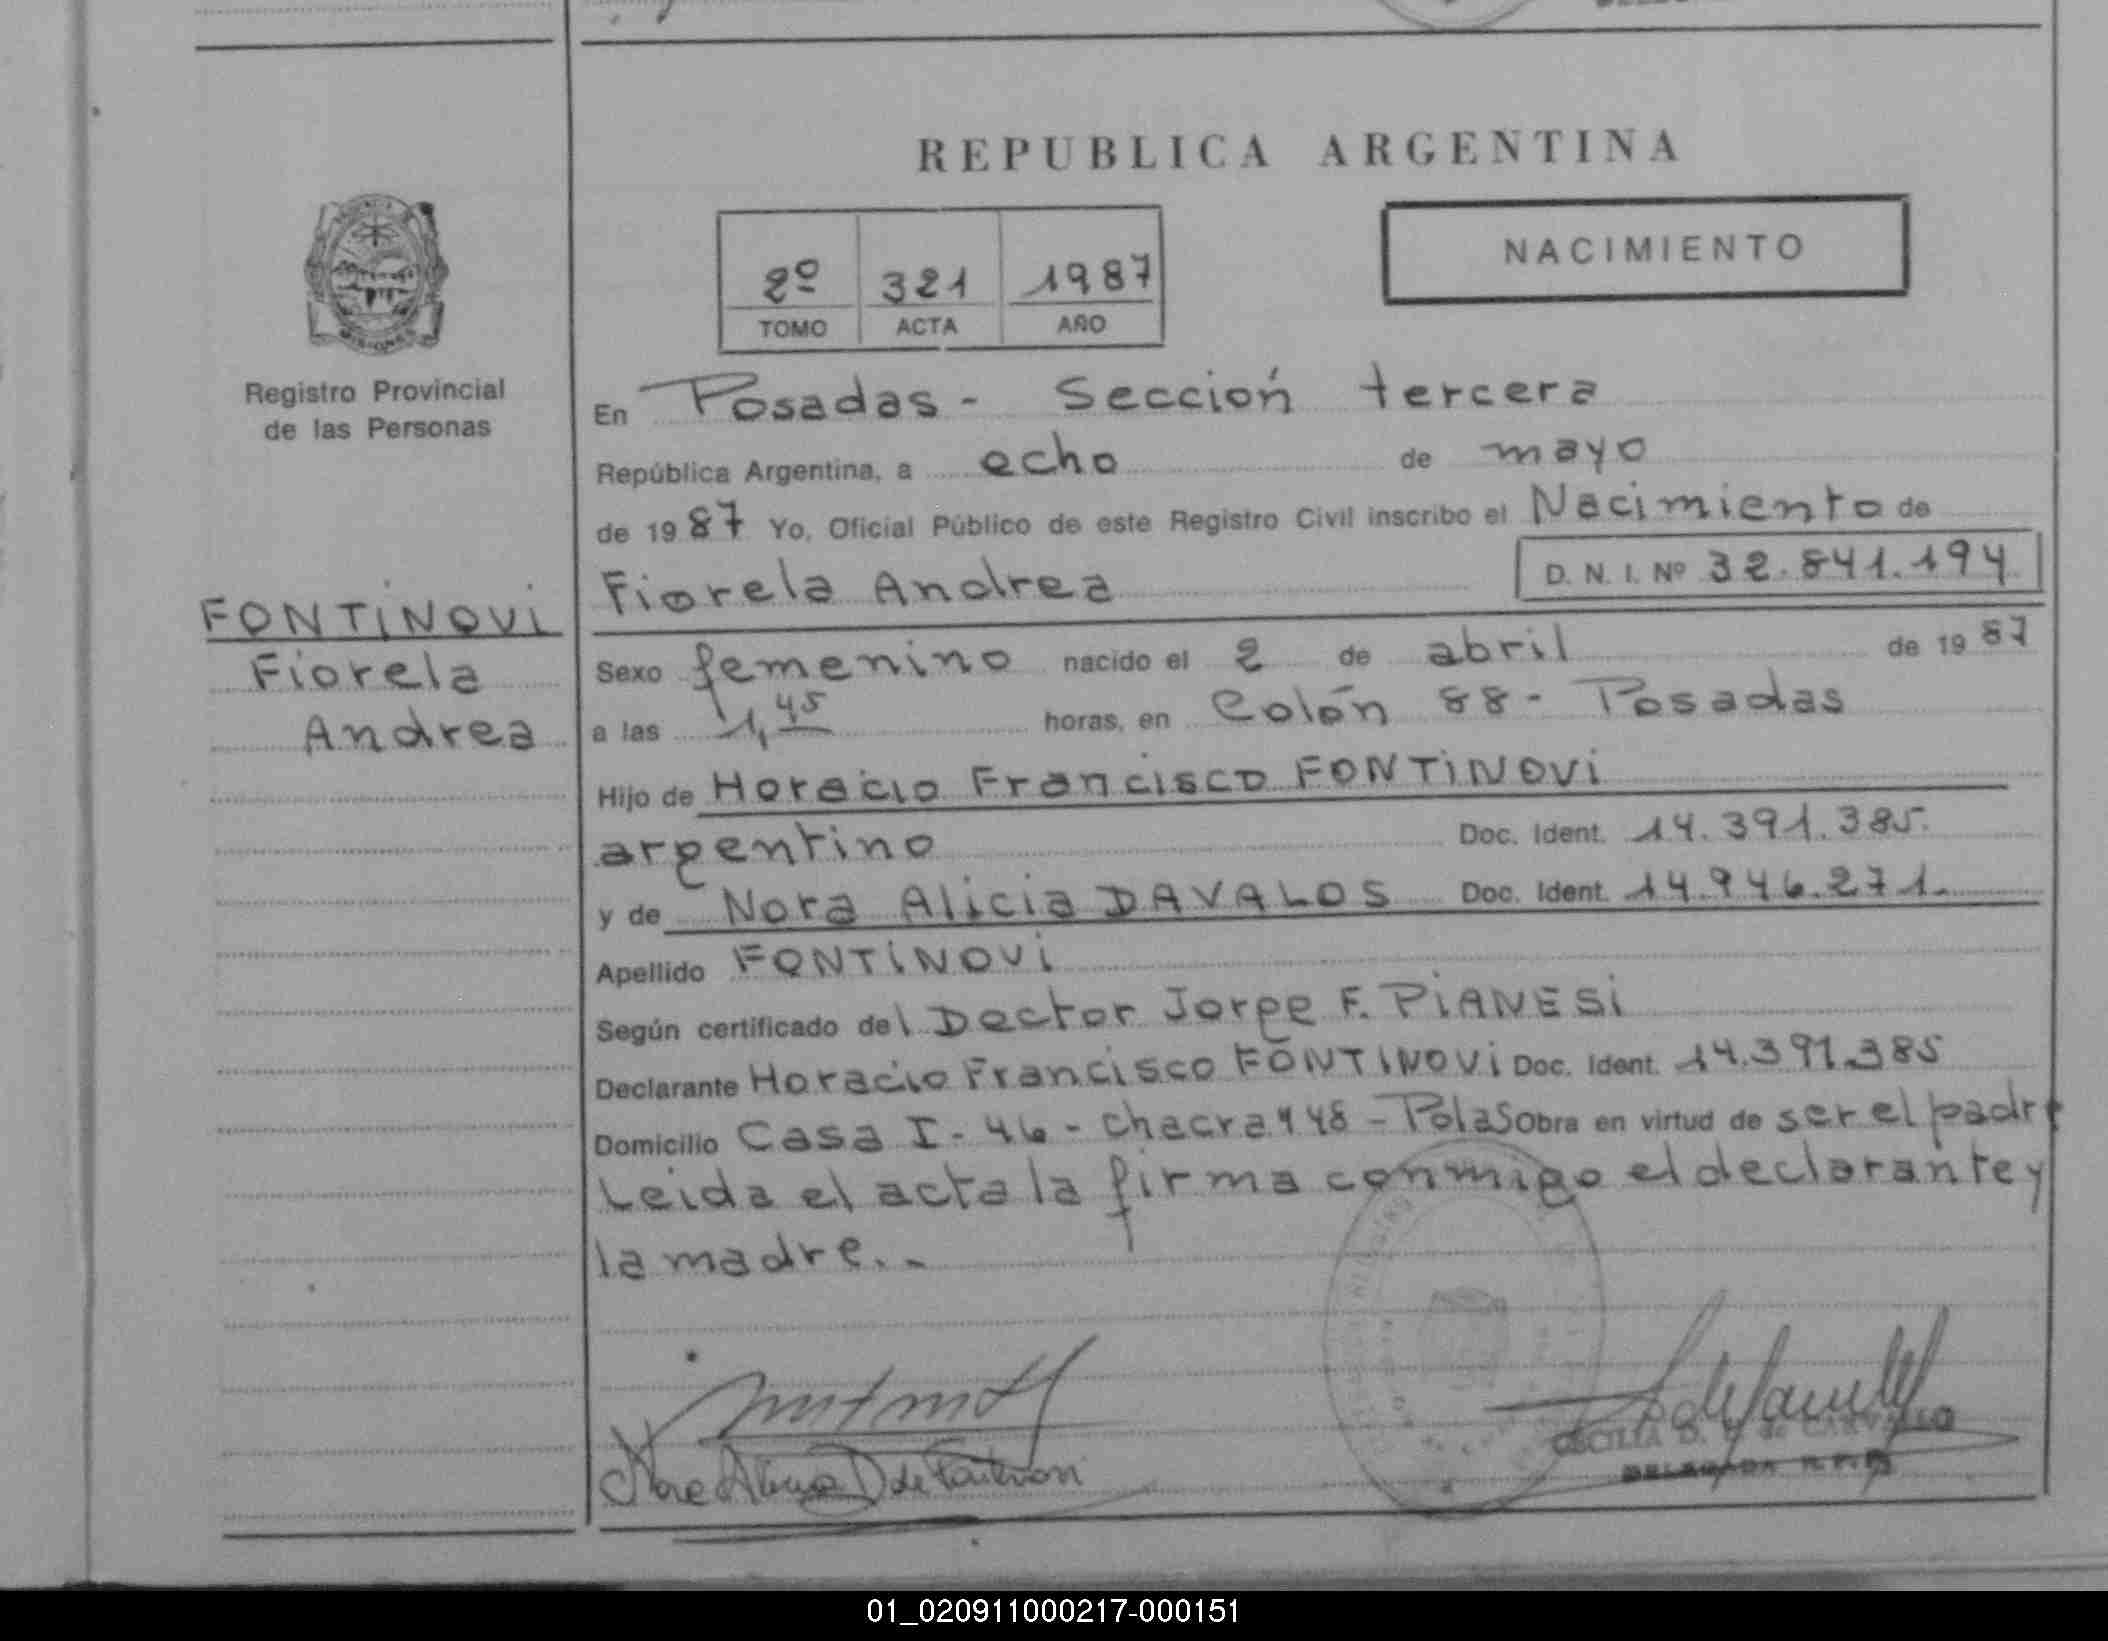 REPUBLICA ARGENTINA
NACIMIENTO
2º 321 1987
TOMO ACTA AÑO
Registro Provincial
de las Personas
En Posadas - Sección tercera
República Argentina, a ocho de mayo
de 1987 Yo, Oficial Público de este Registro Civil inscribo el Nacimiento de
Fiorela Andrea D. N. I. Nº 32.841.194
FONTINOVI
Fiorela
Andrea
Sexo femenino nacido el 2 de abril de 1987
a las 1,45 horas, en Colón 88 - Posadas
Hijo de Horacio Francisco FONTINOVI
argentino Doc. Ident. 14.391.385.
y de Nora Alicia DAVALOS Doc. Ident. 14.946.271.
Apellido FONTINOVI
Según certificado del Doctor Jorge F. PIANESI
Declarante Horacio Francisco FONTINOVI Doc. Ident. 14.391.385
Domicilio Casa I - 46 - chacra 148 - Pdas Obra en virtud de ser el padre
Leida el acta la firma conmigo el declarante y
la madre. -
CECILIA D. de
DELEGADA R.P.P.
01_020911000217-000151